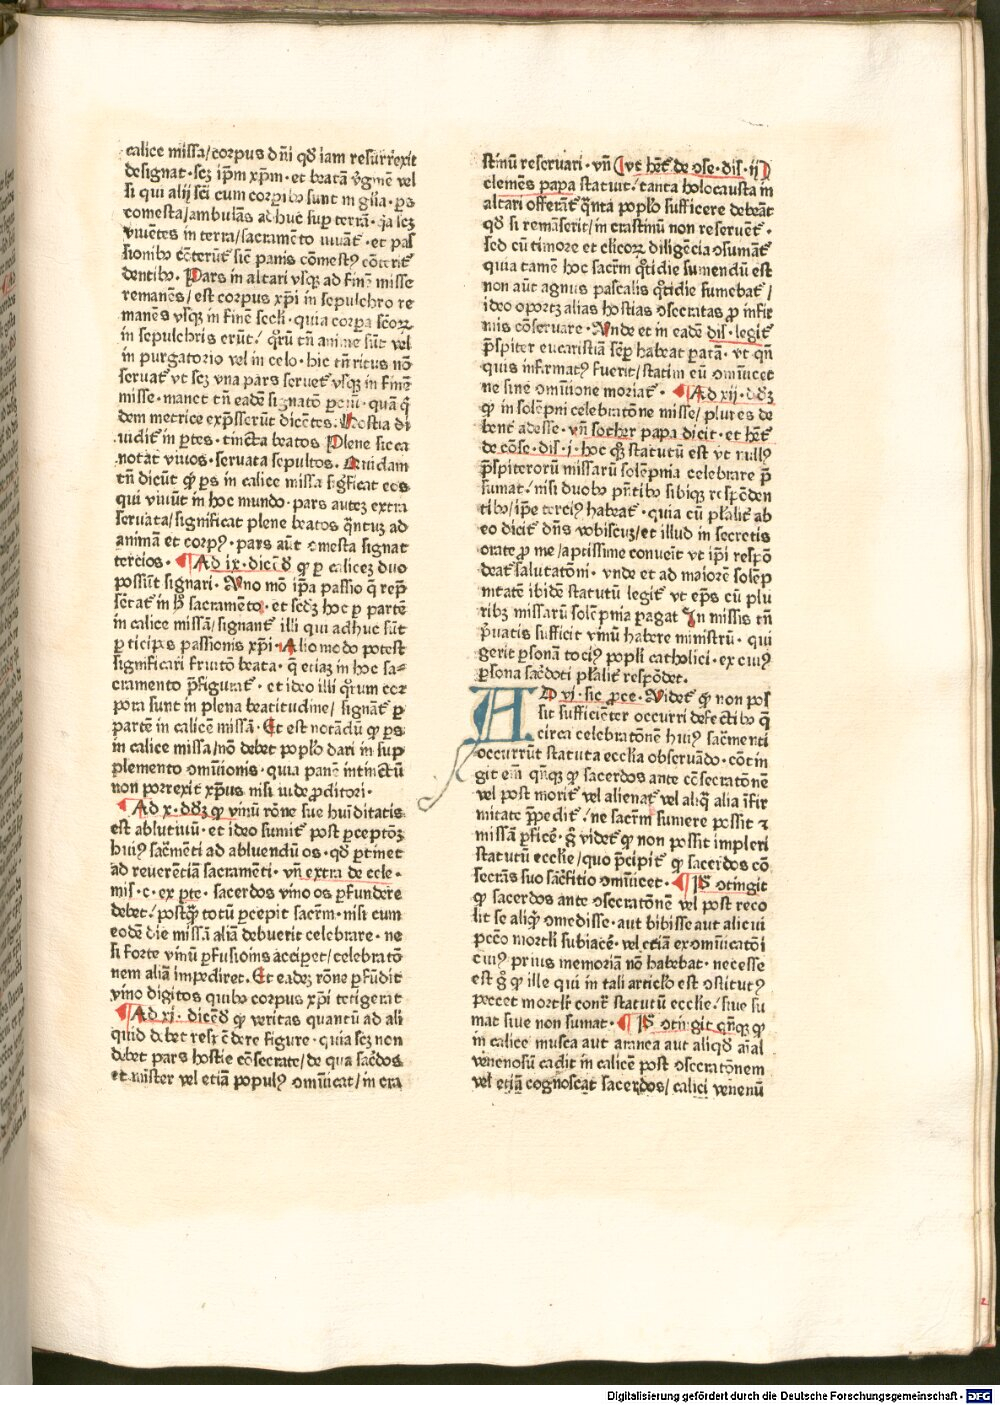 calice missa/corpus dñi qđ iam resurrexit
designat · scꝫ ip̄m xp̄m · et beatā v̓ginē vel
si qui alij sc̄i cum corpib⁹ sunt in gl̄ia · ꝑs
comesta/ambulās adhuc suꝑ terrā · q̄a scꝫ
viuētes in terra/sacramēto viuāt᷑ · et pas
sionib⁹ cōterūt᷑ sic̄ panis cōmest⁹ cōterit᷑
dentib⁹ · Pars in altari vsqꝫ ad finē misse
remanēs/est corpus xp̄i in sepulchro re
manēs vsqꝫ in finē secĺi · quia corꝑa sc̄oꝝ
in sepulchris erūt/ q̊rū tn̄ anime sūt vel
in purgatorio vel in celo · hic tn̄ ritus nō
seruat᷑ vt scꝫ vna pars seruet᷑ vsqꝫ in finē
misse · manet tn̄ eadē signatō
dem metrice exp̄sserūt dicētes · Hostia di
uidit᷑ in ꝑtes · tincta beatos Plene sicca
notat viuos · seruata sepultos · Quidam
tn̄ dicūt qꝙ ꝑs in calice missa sigficat eos
qui viuūt in hoc mundo · pars autꝫ extra
seruata/significat plene beatos q̄ntuꝫ ad
animā et corp⁹ · pars aūt ꝯmesta signat
tercios · ¶ Ad ix · dicēđ ꝙ ꝑ caliceꝫ duo
possūt signari · Vno mō ip̄a passio q̄ rep̄
sētat᷑ in h̓ sacramēto · et scđꝫ hoc ꝑ partē
in calice missā/signant᷑ illi qui adhuc sūt
ꝑticipes passionis xp̄i · Alio modo potest
significari fruitō beata · q̄ etiaꝫ in hoc sa⸗
cramento p̄figurat᷑ · et ideo illi q̊rum cor
pora sunt in plena beatitudine/ signāt᷑ ꝑ
partē in calicē missā · Et est notādū ꝙ ꝑs
in calice missa/nō debet poplo dari in sup
plemento ꝯmūionis · quia panē intinctū
non porrexit xp̄us nisi iude ꝓditori ·
¶ Ad x · dđꝫ ꝙ vinū rōne sue hūiditatis
est ablutiuū · et ideo sumit᷑ post ꝑceptōꝫ
hui⁹ sac̄mēti ad abluendū os · qđ ꝑtinet
ad reuerētiā sacramēti · vn̄ extra de cele ·
mis · c · ex ꝑte · sacerdos vino os ꝑfundere
debet/ postq̄ꝫ totū ꝑcepit sacr̄m · nisi cum
eodē die missā aliā debuerit celebrare · ne
si forte vinū ꝑfusionis acciꝑet/celebratō
nem aliā impediret · Et eadeꝫ rōne ꝑfūdit
vino digitos quib⁹ corpus xp̄i tetigerat
¶ Ad xj · dicēđ ꝙ veritas quantū ad ali
quid debet respōdere figure · quia scꝫ non
debet pars hostie cōsecrate/de qua sac̓dos
et mīster vel etiā popul⁹ ꝯmūicat/in cra
stinū reseruari · vn̄ (vt hēt᷑ de ꝯse · dis · ij)
clemēs papa statuit/ tanta holocausta in
altari offerāt᷑ q̄nta poplo sufficere debeāt
qđ si remāserīt/in crastinū non reseruēt᷑ ·
sed cū timore et clicoꝝ diligēcia ꝯsumāt᷑
quia tamē hoc sacr̄m q̊tidie sumendū est
non aūt agnus pascalis q̊tidie sumebat᷑/
ideo oportꝫ alias hostias ꝯsecratas ꝓ infir
mis cōseruare · Vnde et in eadē dis · legit᷑
p̄spiter eucaristiā sēꝑ habeat ꝑatā · vt qn̄
quis infirmat⁹ fuerit/statim eū ꝯmūicet
ne sine ꝯmūione moriat᷑ · ¶ Ad xij · dđꝫ
ꝙ in solēpni celebratōne misse/plures de
bent adesse · vn̄ sother papa dicit · et hēt᷑
de cōse · dis · j · hoc q̊ꝫ statutū est vt null⁹
p̄spiterorū missarū solēpnia celebrare p̄
sumat/ nisi duob⁹ p̄ntib⁹ sibiqꝫ respōden
tib⁹/ip̄e terci⁹ habeat᷑ · quia cū pl̄alit᷑ ab
eo dicit᷑ dn̄s vobiscuꝫ/et illud in secretis
orate ꝓ me/aptissime conueīt vt ip̄i respō
deat᷑ salutatōni · vnde et ad maiorē solēp
nitatē ibidē statutū legit᷑ vt ep̄s cū plu
ribꝫ missarū solēpnia ꝑagat In missis tn̄
p̓uatis sufficit vnū habere ministrū · qui
gerit ꝑsonā toci⁹ popli catholici · ex cui⁹
ꝑsona sac̓doti pl̄alit᷑ respōdet᷑ ·
AD vj · sic ꝓce · Videt᷑ ꝙ non pos
sit sufficiēter occurri defectib⁹ q̄
circa celebratōnē hui⁹ sac̄menti
occurrūt statuta ecclīa obseruādo · cōtin
git em̄ qn̄qꝫ ꝙ sacerdos ante cōsecratōnē
vel post morit᷑ vel alienat᷑ vel aliq̄ alia īfir
mitate p̄pedit᷑/ ne sacr̄m sumere possit ⁊
missā ꝑficē · g̊ videt᷑ ꝙ non possit impleri
statutū ecclīe/quo p̄cipit᷑ ꝙ sacerdos cō
secrās suo sac̓fitio ꝯmūicet · ¶ Ps ꝯtingit
ꝙ sacerdos ante ꝯsecratōnē vel post reco
lit se aliq̊ ꝯmedisse · aut bibisse aut alicui
pccō mortĺi subiacē · vel etiā exꝯmūicatōī
cui⁹ prius memoriā nō habebat · necesse
est g̊ ꝙ ille qui in tali articlo est ꝯstitut⁹
peccet mortĺr ꝯtr̄ statutū ecclīe/ siue su
mat siue non sumat · ¶ Ps ꝯtīgit qn̄qꝫ ꝙ
in calicē musca aut aranea aut aliqđ aīal
venenosū cadit in calicē post ꝯsecratōnem
vel etiā cognoscat sacerdos/ calici venenū
Digitalisierung gefördert durch die Deutsche Forschungsgemeinschaft - DFG